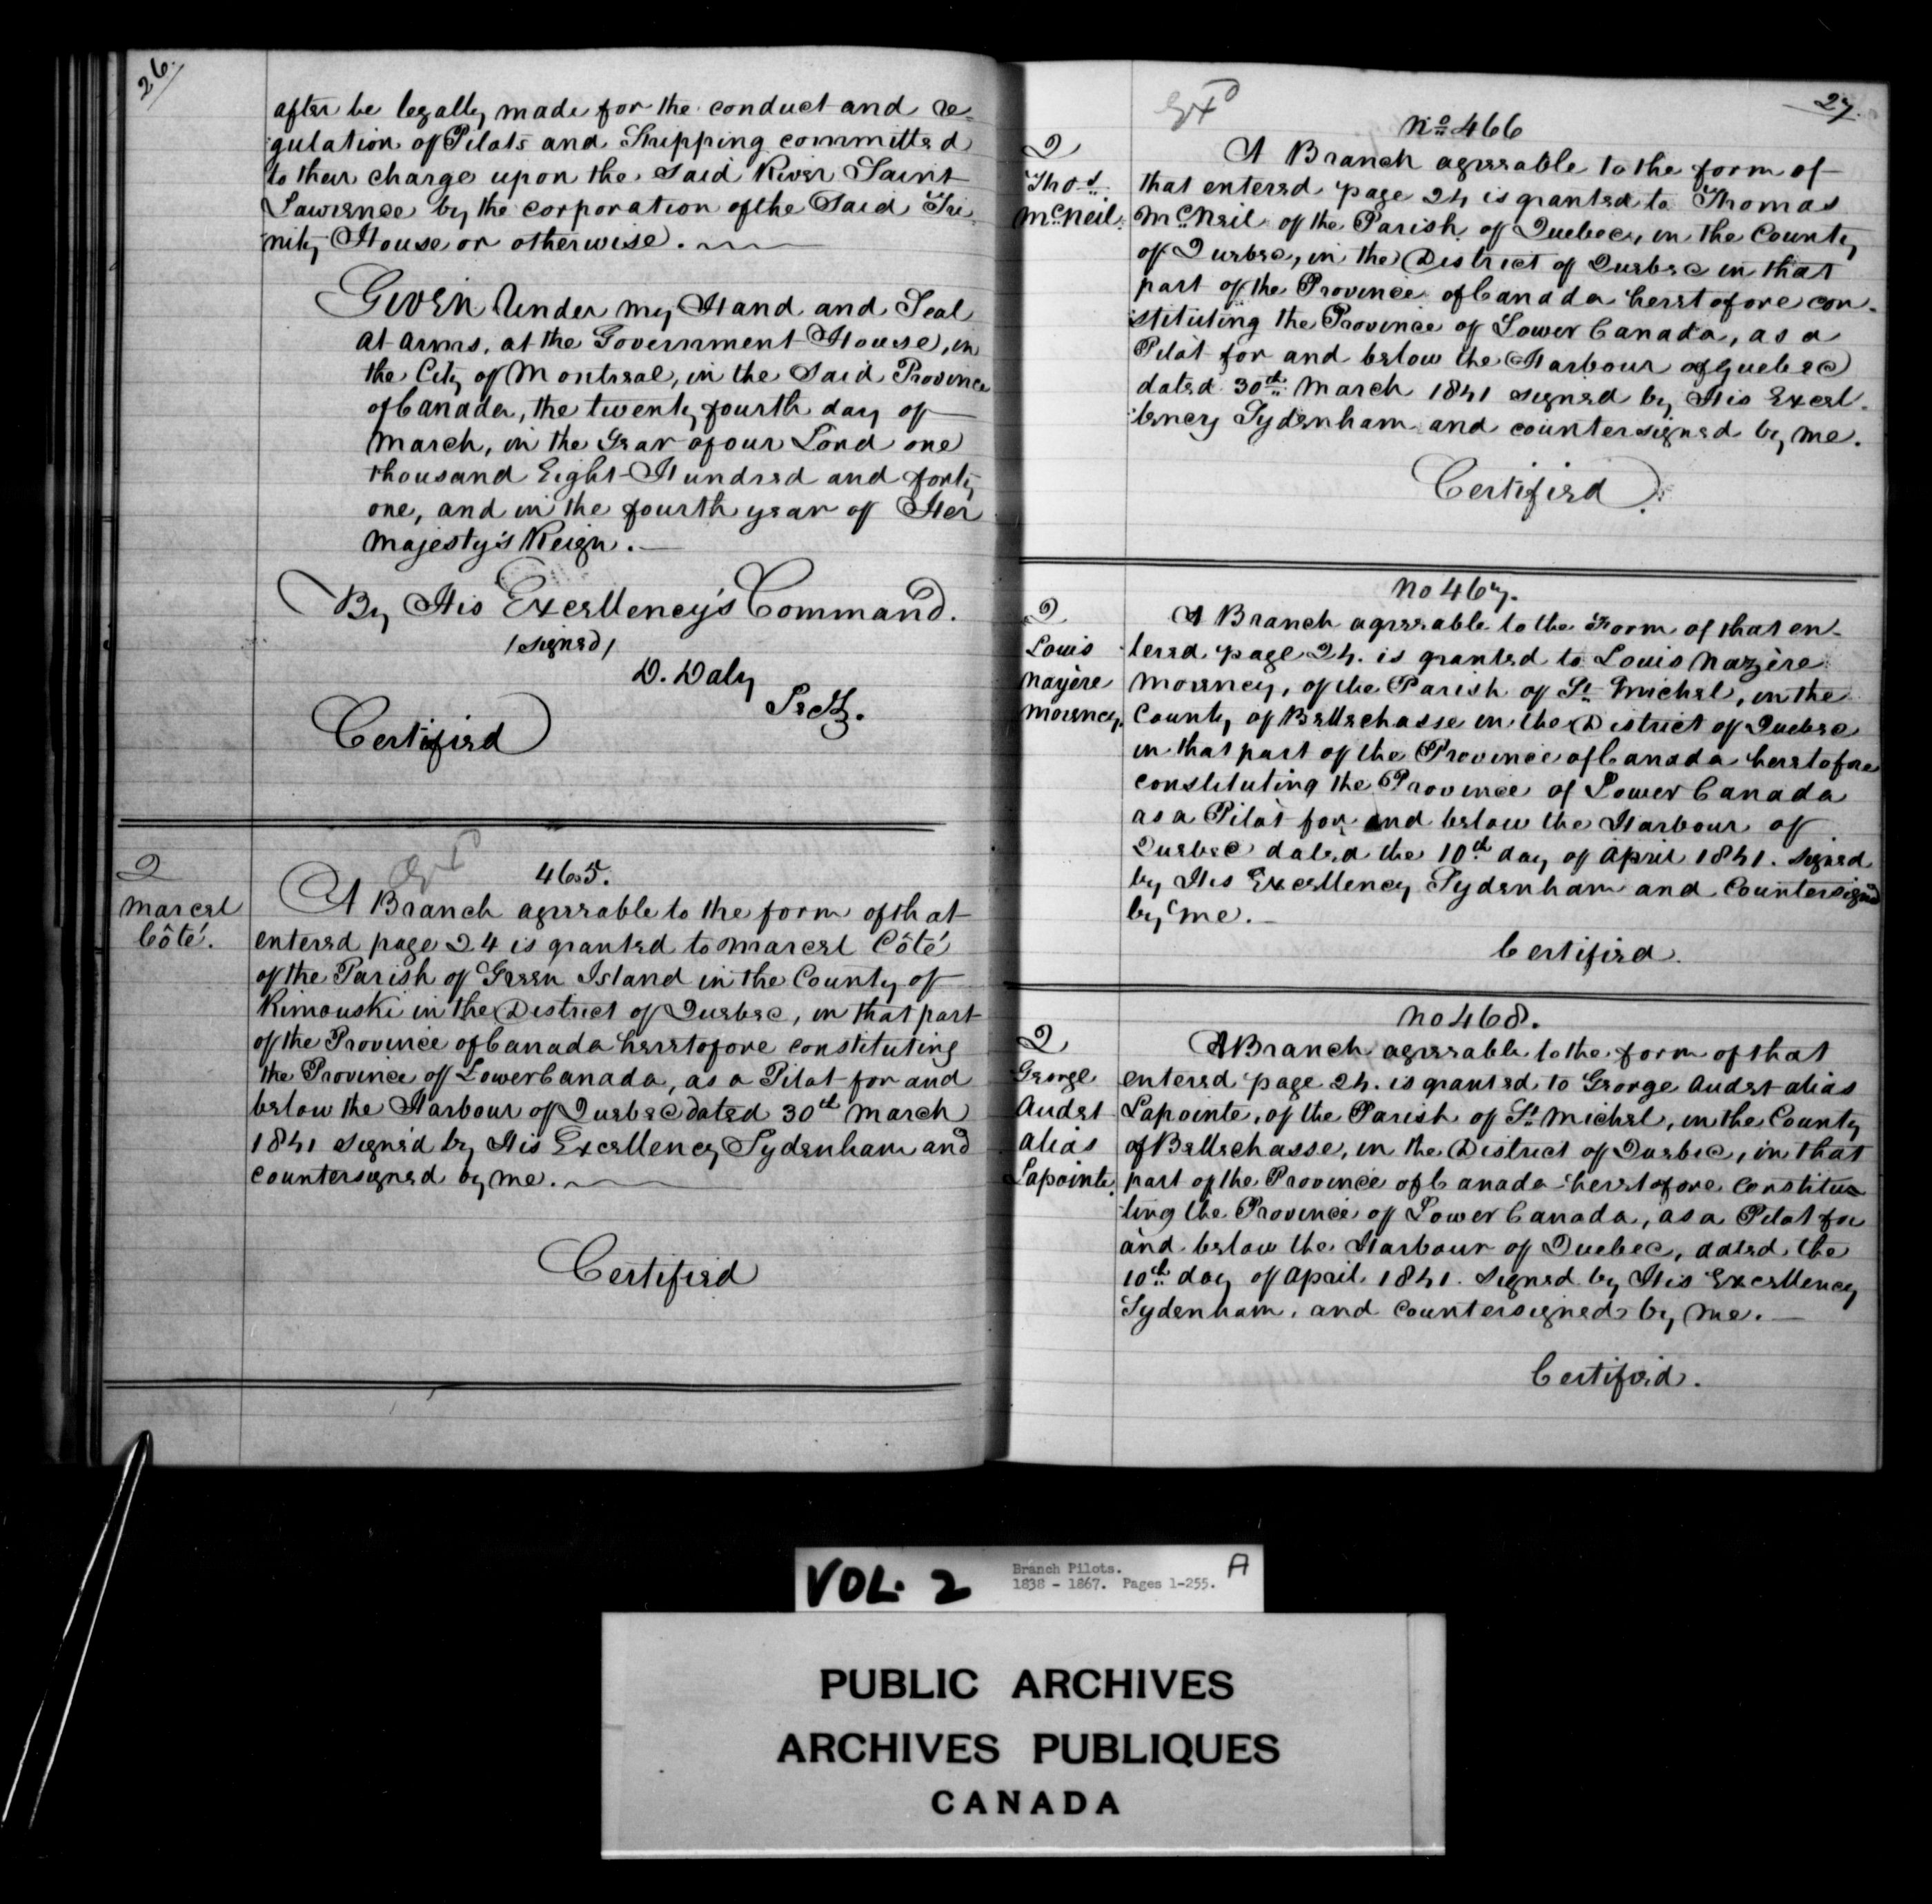 26.
after be legally made for the conduct and re-
gulation of Pilots and Shipping committed
to their charge upon the said River Saint
Lawrence by the corporation of the Said Tri-
nity House or otherwise.
Given Under my Hand and Seal
at arms, at the Government House, in
the City of Montreal, in the Said Province
of Canada, the twenty fourth day of
March, in the Year of our Lord one
thousand Eight Hundred and forty
one, and in the fourth year of Her
Majesty's Reign.
By His Excellency's Command.
/signed/
D. Daly
Secy.
Certified
2
Marcel
Côté.
465.
A Branch agreeable to the form of that
entered page 24 is granted to Marcel Côté
of the Parish of Green Island in the County of
Rimouski in the District of Quebec, in that part
of the Province of Canada heretofore constituting
the Province of Lower Canada, as a Pilot for and
below the Harbour of Quebec dated 30th March
1841 signed by His Excellency Sydenham and
countersigned by me.
Certified
27.
No 466
2
Thos
McNeil.
A Branch agreeable to the form of
that entered page 24 is granted to Thomas
McNeil of the Parish of Quebec, in the County
of Quebec, in the District of Quebec in that
part of the Province of Canada heretofore con-
stituting the Province of Lower Canada, as a
Pilot for and below the Harbour of Quebec
dated 30th March 1841 signed by His Excel-
lency Sydenham and countersigned by me.
Certified
No 467.
2
Louis
Nayère
Moerney.
A Branch agreeable to the Form of that en-
tered page 24. is granted to Louis Nazère
Moerney, of the Parish of St Michel, in the
County of Bellechasse in the District of Quebec
in that part of the Province of Canada heretofore
constituting the Province of Lower Canada
as a Pilot for and below the Harbour of
Quebec dated the 10th day of April 1841. signed
by His Excellency Sydenham and Countersigned
by me.
Certified.
No 468.
2
George
Audet
alias
Lapointe.
A Branch agreeable to the form of that
entered page 24. is granted to George Audet alias
Lapointe, of the Parish of St Michel, in the County
of Bellechasse, in the District of Quebec, in that
part of the Province of Canada heretofore constitu-
ting the Province of Lower Canada, as a Pilot for
and below the Harbour of Quebec, dated the
10th day of April 1841. signed by His Excellency
Sydenham, and countersigned by me.
Certified.
VOL. 2
Branch Pilots.
1838 - 1867. Pages 1-255.
A
PUBLIC ARCHIVES
ARCHIVES PUBLIQUES
CANADA